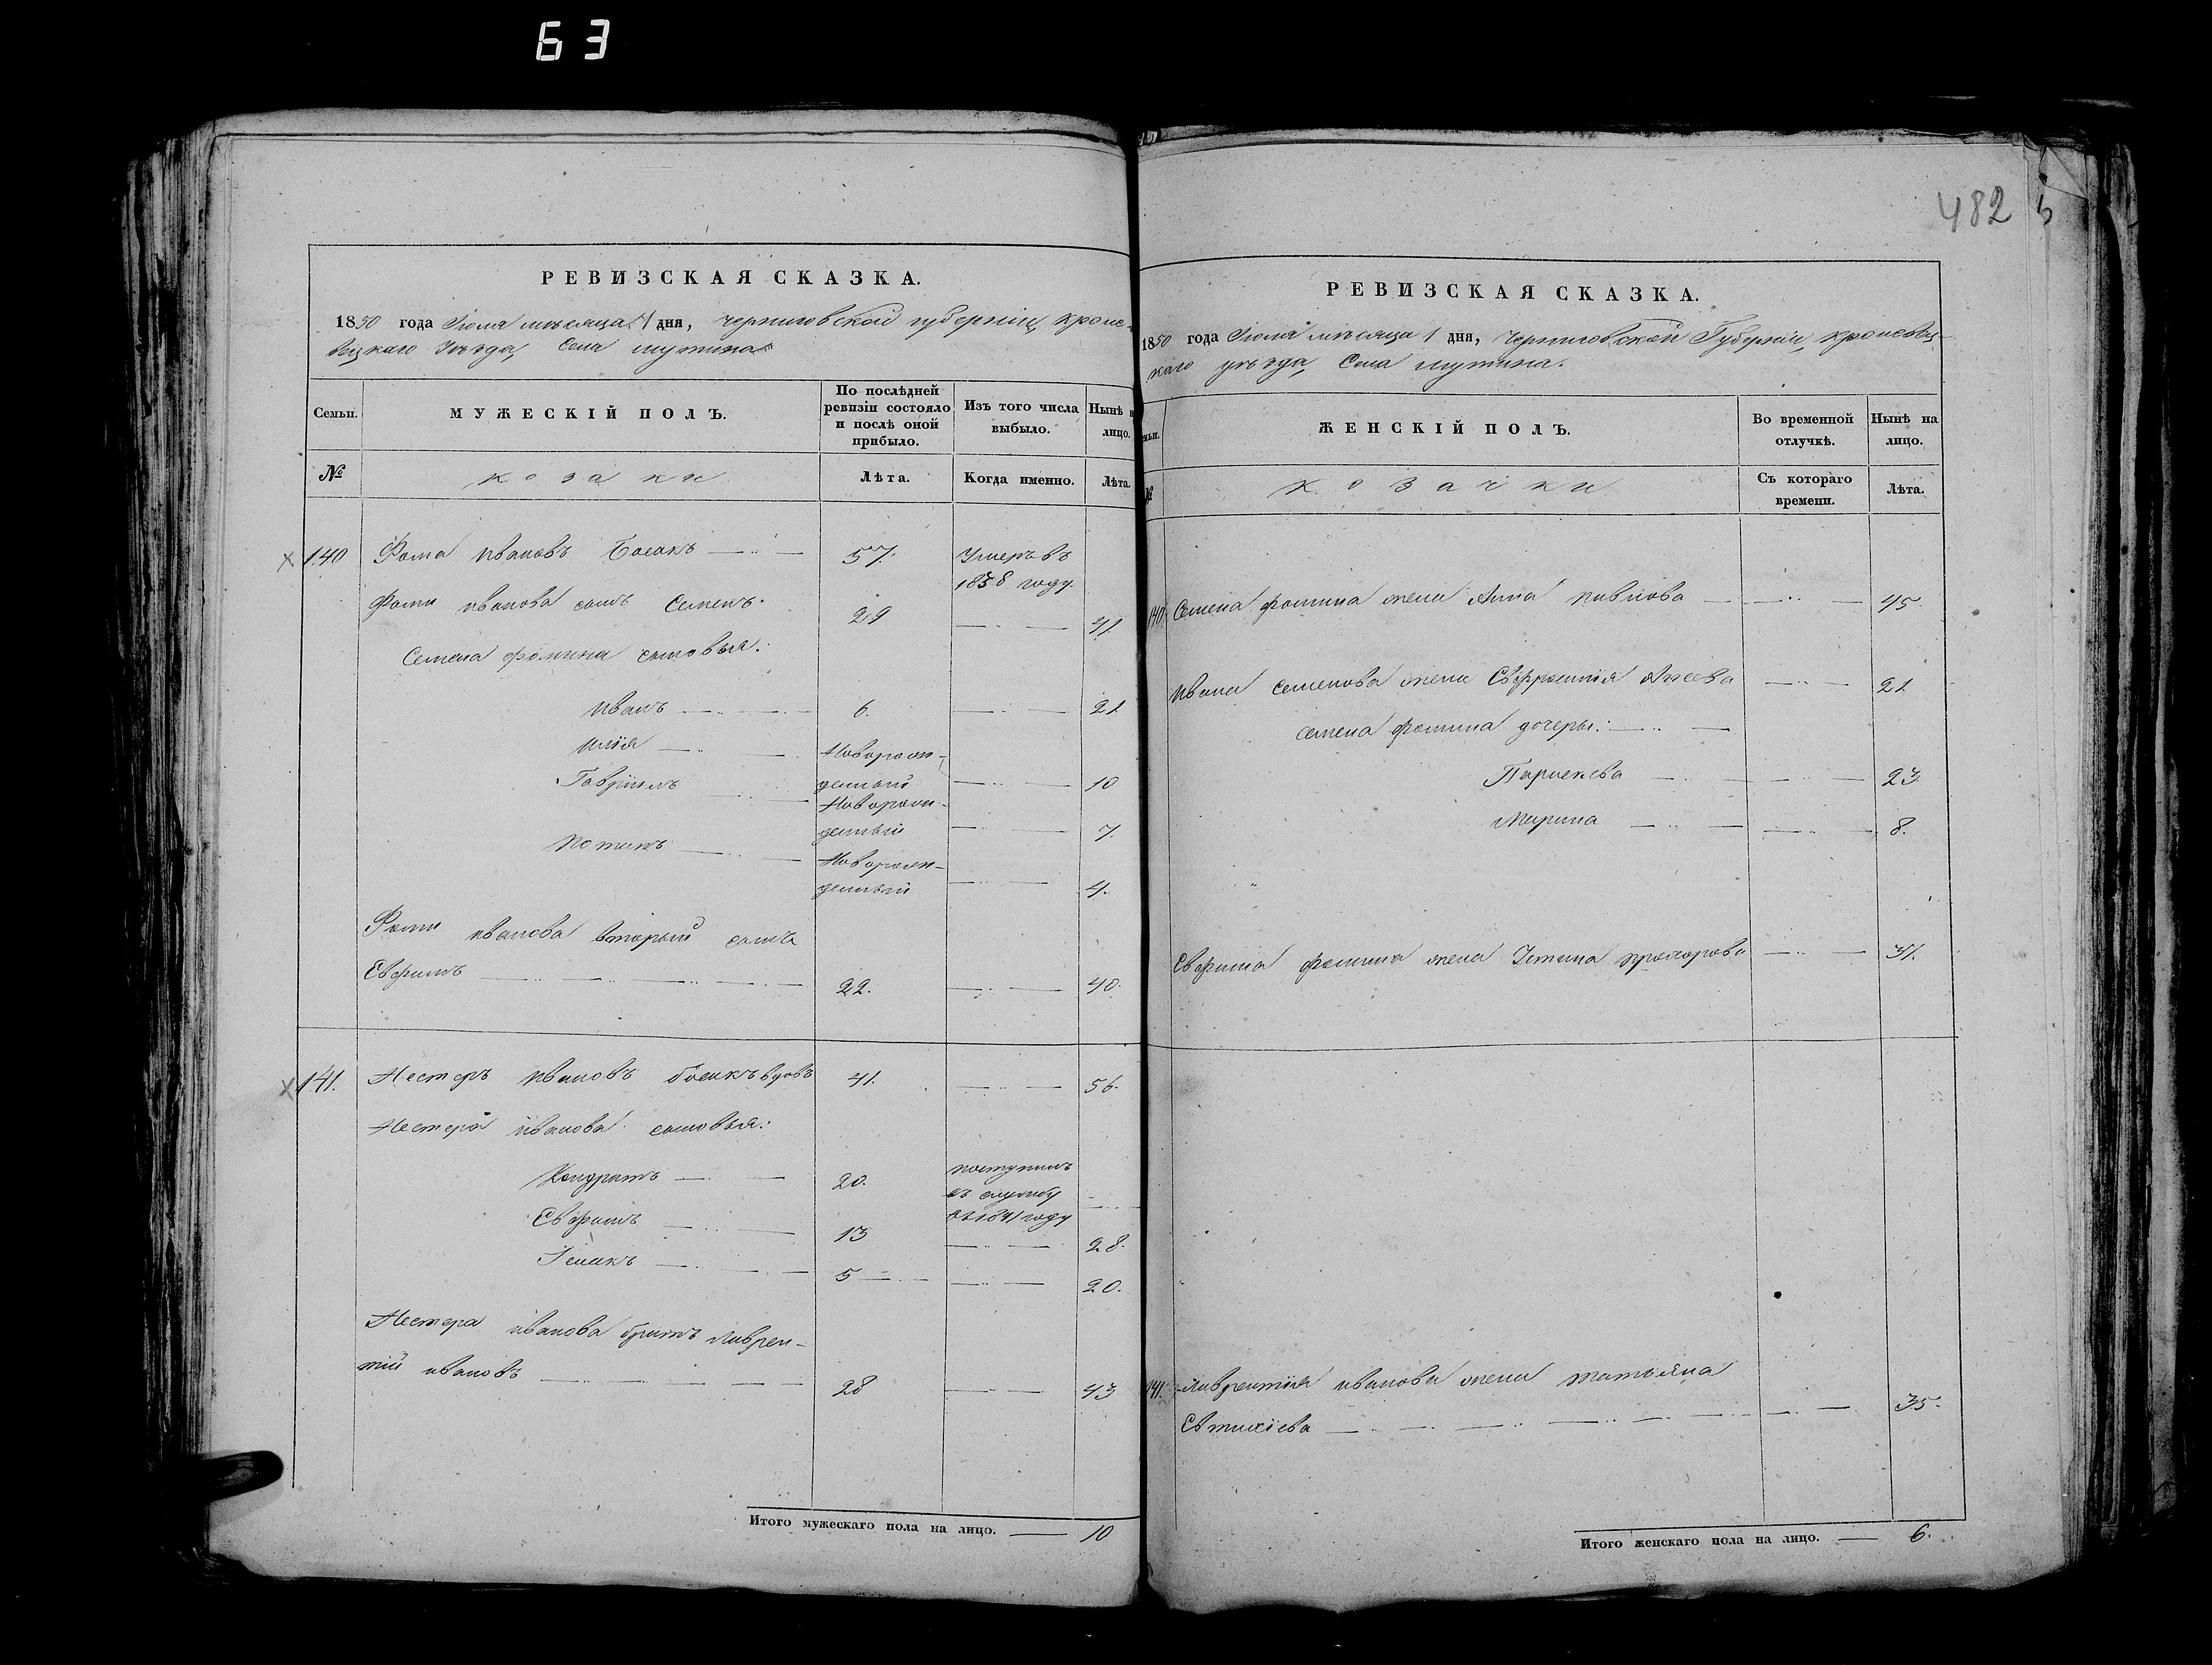 63
482
РЕВИЗСКАЯ СКАЗКА.
1850 года Іюля мѣсяца 1 дня, черниговской губерніи, кроле-
вецкаго уѣзда, Села мутина
Семьи.
МУЖЕСКІЙ ПОЛЪ.
По послѣдней ревизіи состояло и послѣ оной прибыло.
Изъ того числа выбыло.
Нынѣ н
лицо.
№
козаки
Лѣта.
Когда именно.
Лѣта.
140 Фома ивановъ Босакъ 57. Умеръ въ
1838 году.
Фомы иванова сынъ Семенъ. 29 41
Семена фомина сыновья:
иванъ 6. 21
илія Новорож-
денный 10
Гавріилъ Новорож-
денный 7.
потапъ Новорож-
денный 4.
Фомы иванова вторый сынъ
Евфимъ 22. 40.
141. Нестеръ ивановъ босакъ вдовъ 41. 56.
Нестера иванова сыновья:
Кондратъ 20. поступилъ
въ службу
въ 1841 году
Евфимъ 13 28.
5 20.
Нестера иванова братъ лаврен-
тий ивановъ 28 43
Итого мужескаго пола на лицо. 10
РЕВИЗСКАЯ СКАЗКА.
1850 года Іюля мѣсяца 1 дня, Черниговской Губерніи, кролевец-
каго уѣзда, Села мутина.
ьи.
ЖЕНСКІЙ ПОЛЪ.
Во временной отлучкѣ.
Нынѣ на лицо.
№
козачки
Съ котораго времени.
Лѣта.
140. Семена фомина жена Анна 45.
ивана семенова жена Евфросинія 21
семена фомина дочеры:
Параскева 23.
Марина 8.
Евфима фомина жена прохорова 31.
141. лаврентія иванова жена татьяна
Евтихіева 35.
Итого женскаго пола на лицо. 6.